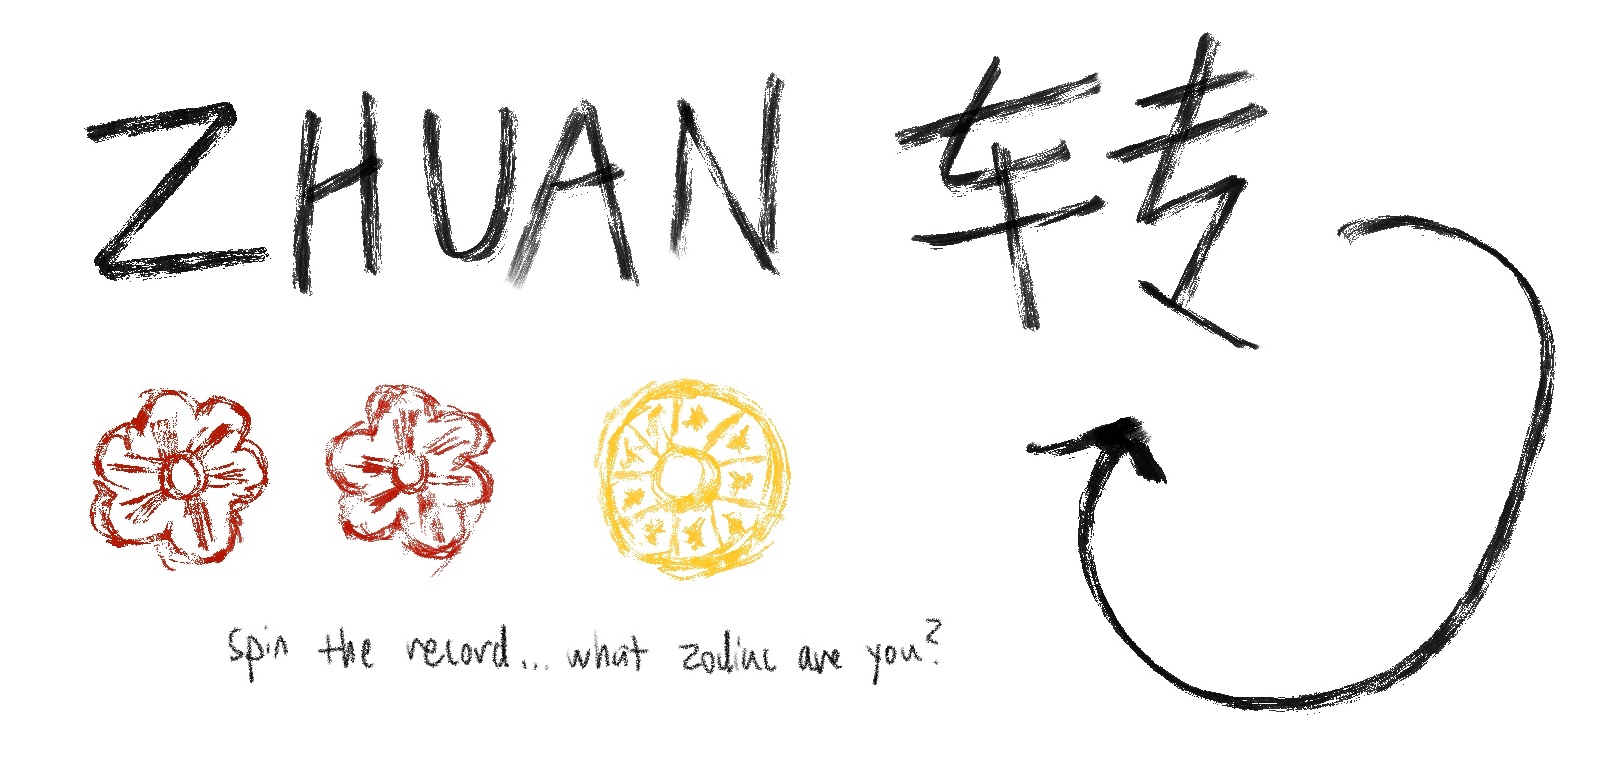 ZHUAN 转
Spin the record... what zodiac are you?